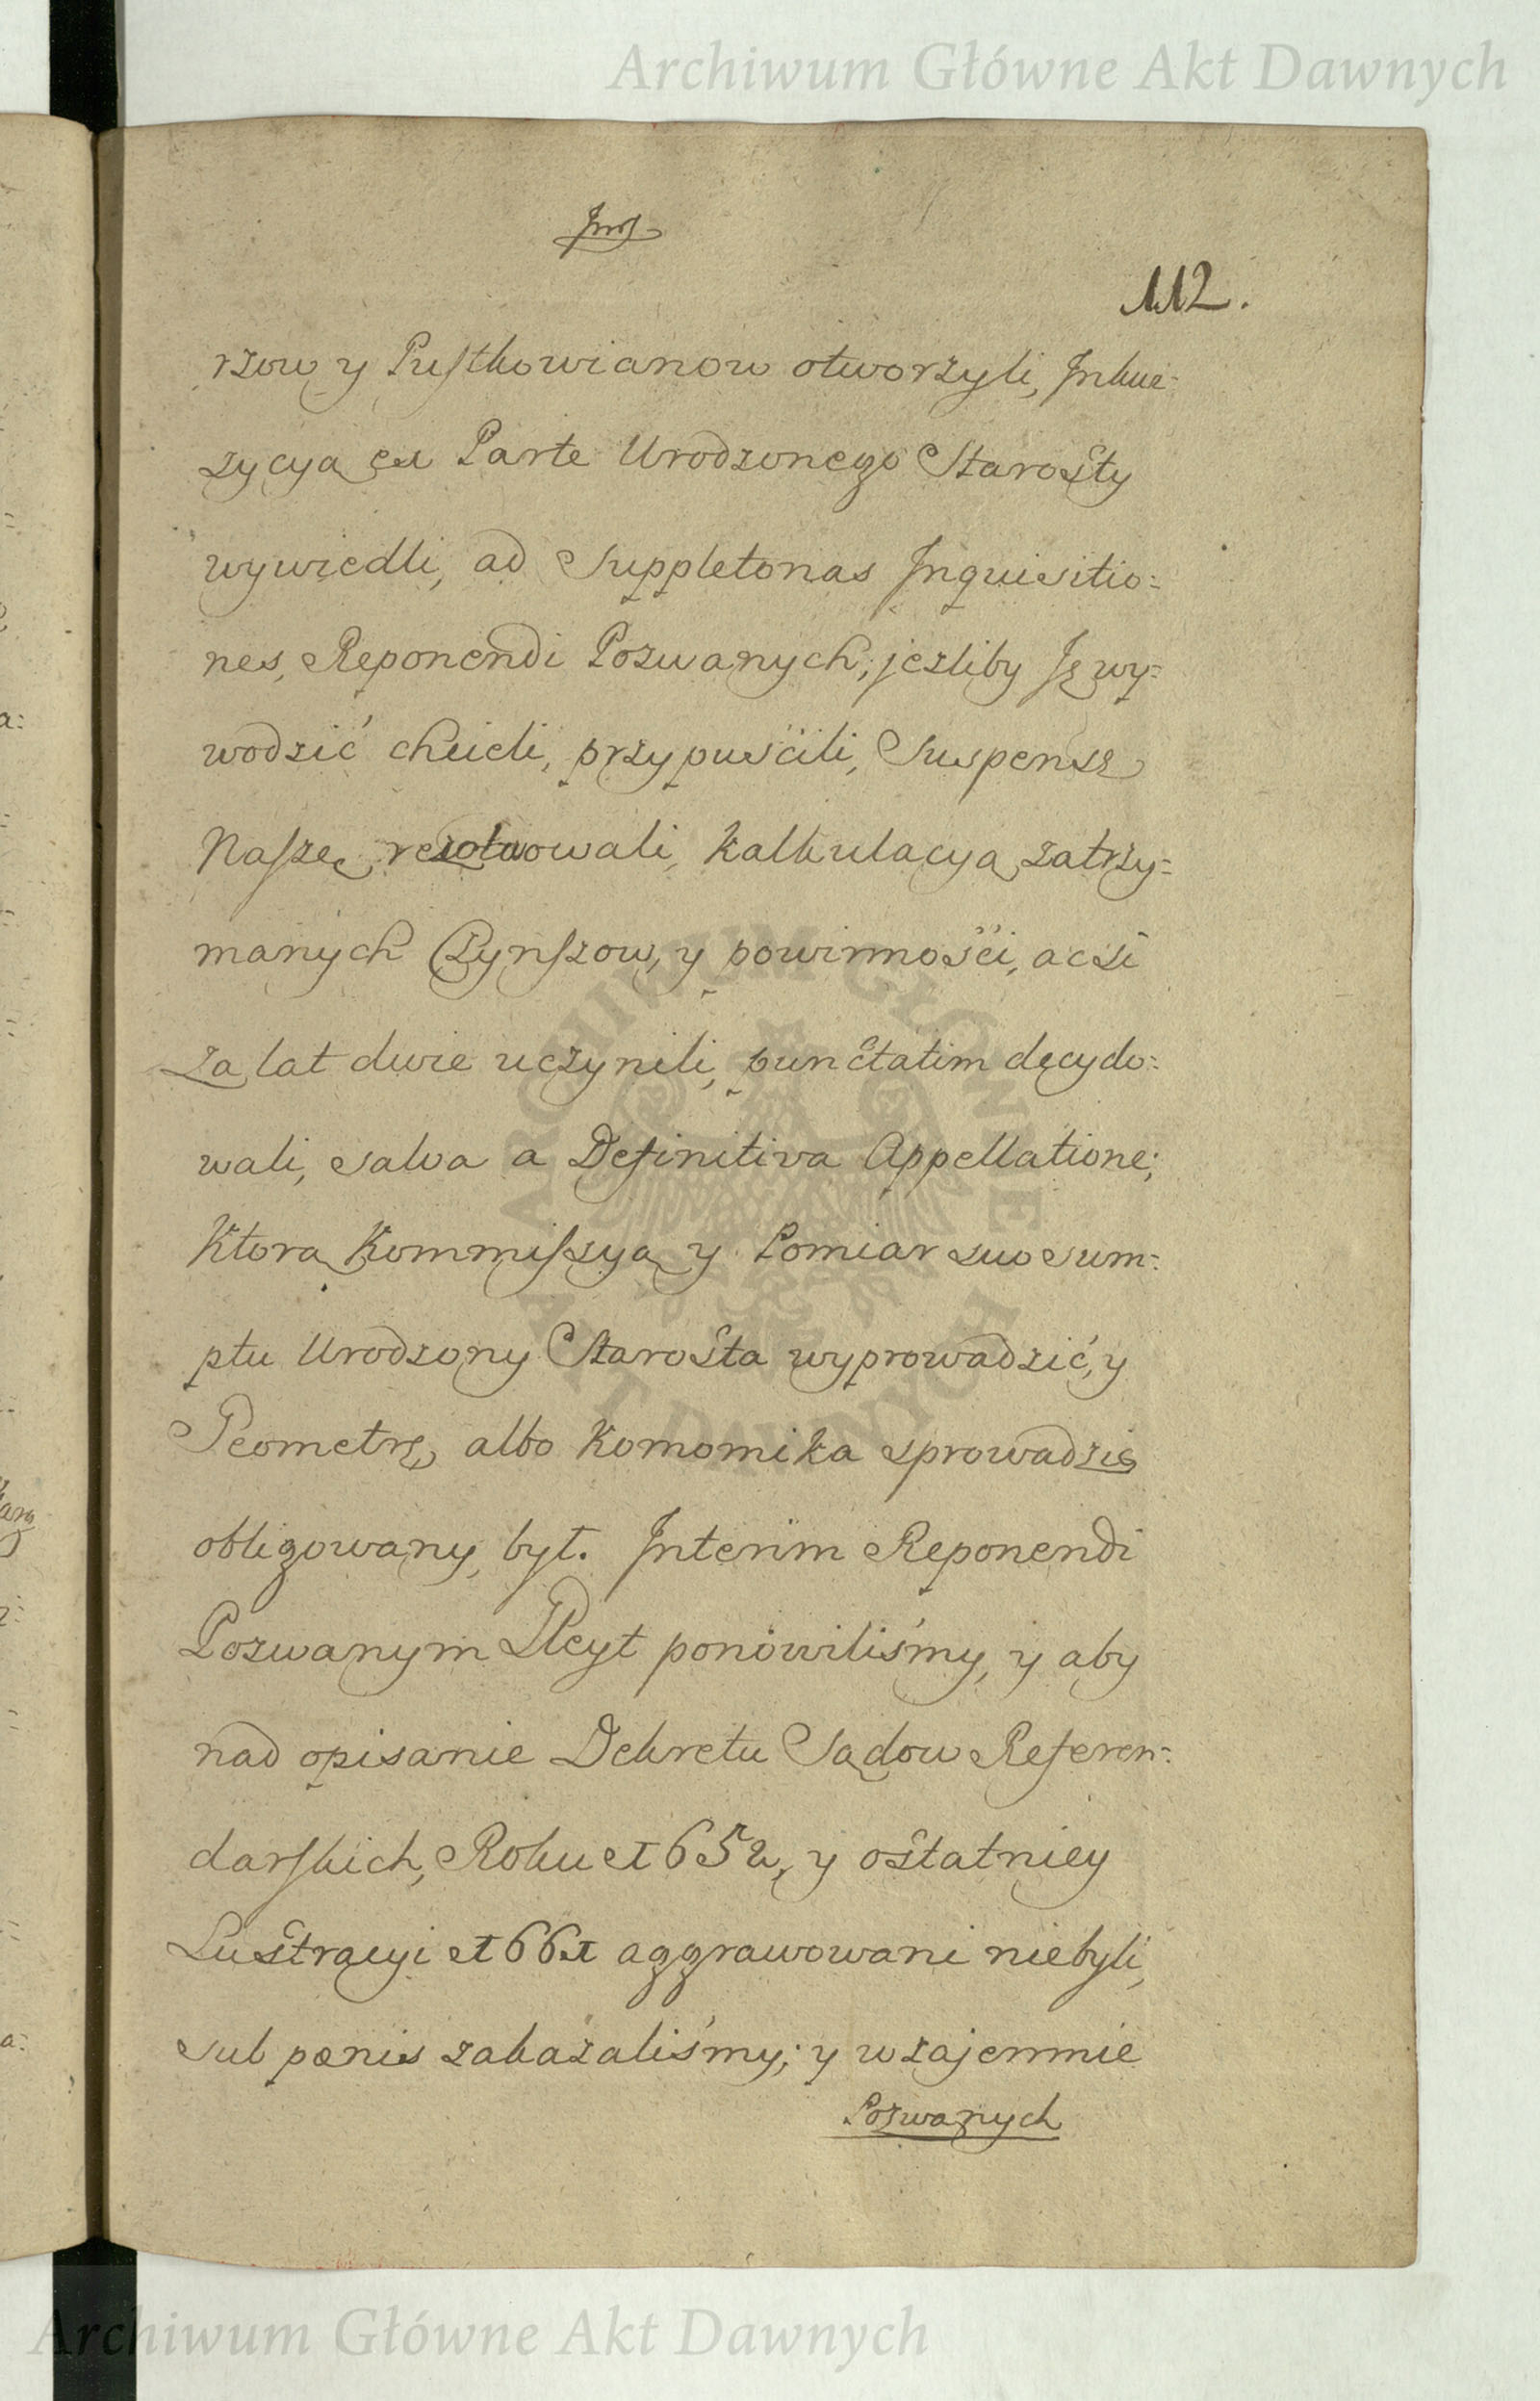 Archiwum Główne Akt Dawnych
112.
rzow y Pustkowianow otworzyli, Inkwe=
zycyą ex Parte Urodzonego Starosty
wywiedli, ad Suppletorias Inquisitio=
nes, Reponendi Pozwanych, jezliby Ję wy=
wodzić chcieli, przypuścili, Suspensę
Naszę rezolwowali, Kalkulacyą zatrzy=
manych Czynszow, y powinności, acżi
za lat dwie uczynili, punctatim decydo=
wali, salva a Definitiva Appellatione;
Ktorą Kommiszyą y Pomiar suo sum=
ptu Urodzony Starosta wyprowadzić, y
Geometrę, albo Komornika sprowadzić
obligowany był. Interim Reponendi
Pozwanym Gleyt ponowiliśmy, y aby
nad opisanie Dekretu Sądow Referen=
darskich, Roku 1652, y ostatniey
Lustracyi 1661 aggrawowani niebyli,
sub pœnis zakazaliśmy; y wzajemnie
Pozwanych
ARCHIWUM GŁÓWNE AKT DAWNYCH
Archiwum Główne Akt Dawnych